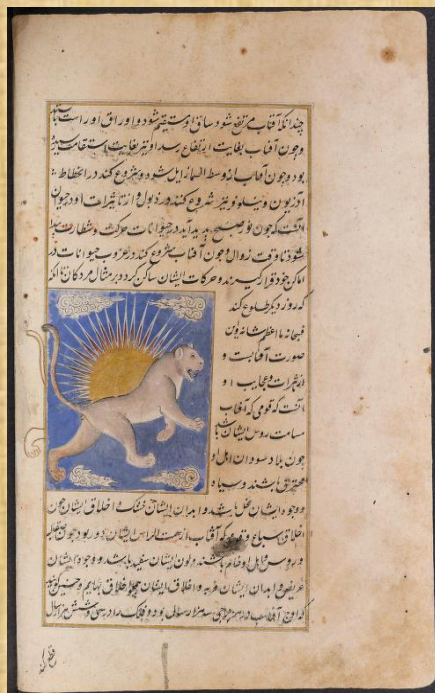 چندانکه آفتاب مرتفع شود ساق او مستقیم شود و اوراق او راست بایستد
و چون آفتاب بغایت ارتفاع رسد او نیز بغایت استقامت رسیده
بود و چون آفتاب از وسط السما زایل شود و شروع کند در انحطاط
آذریون و نیلوفر نیز شروع کنند در ذبول و از تأثیرات او در حیوان
آنست که چون نور صبح پدید آید در حیوانات حرکت و نشاط پیدا
شود تا وقت زوال و چون آفتاب شروع کند در غروب حیوانات در
اماکن خود قرار گیرند و حرکات ایشان ساکن گردد بر مثال مردکان تا آنکه
که روز دیگر طلوع کند
فسبحانه ما اعظم شانه و این
صورت آفتابست و
از تأثیرات و عجایب او
آنست که قومی که آفتاب
مسامت رؤس ایشان باشد
چون بلاد سودان اهل او
محترق باشند و سیاه
و وجوه ایشان باشد و ابدان ایشان خشک و اخلاق ایشان چون
اخلاق سباع و قومی که آفتاب از سمت الراس ایشان دور بود چون صقلاب
و روس و اهل او خام باشند و لون ایشان سفید باشد و وجوه ایشان
عریض و ابدان ایشان فربه و اخلاق ایشان همچو اخلاق بهایم و چنین گویند
که اوج آفتاب در هر برجی سه هزار سال بود و فلک را در سی و شش هزار سال